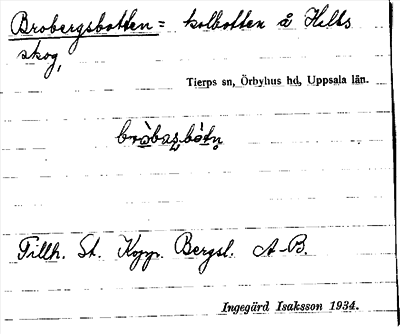 Brobergsbotten = kolbotten å Helts
skog,
Tierps sn, Örbyhus hd, Uppsala län.
Tillh. St. Koppr. Bergsl. A-B.
Ingegärd Isaksson 1934.